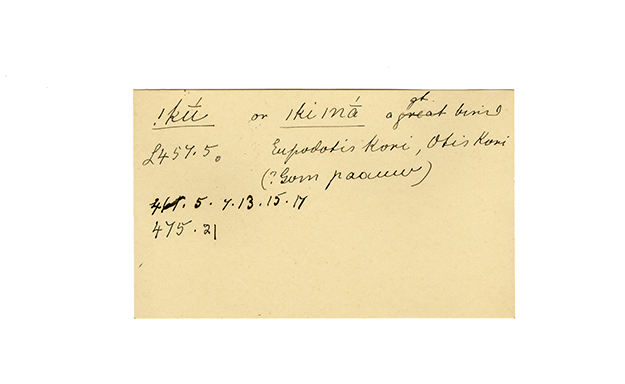 !kúī or ǀkimā́ a great bird
L457.5. Eupodotis Kori, Otis Kori
(?Gom paauw)
461. 5. 7. 13. 15. 17
475. 21